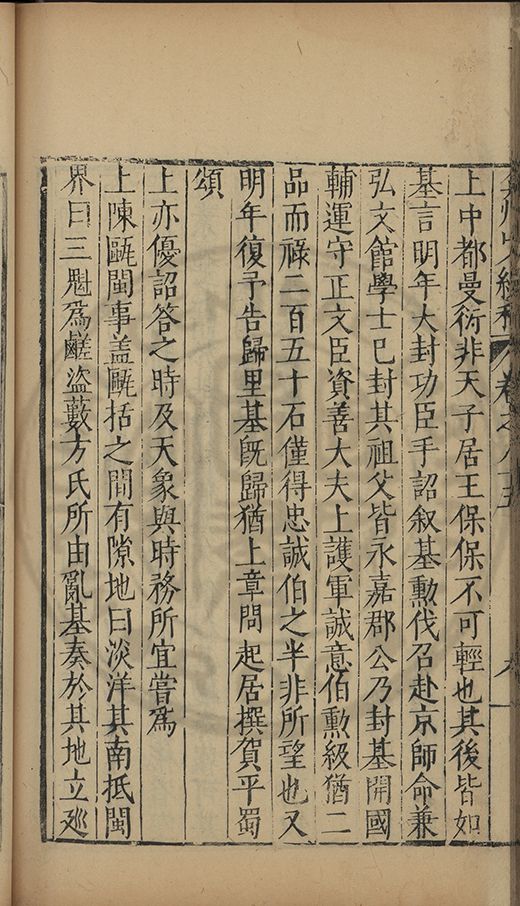 弇州山人續稿 卷之八十五
上中都曼衍非天子居王保保不可輕也其後皆如
基言明年大封功臣手詔叙基勲伐召赴京師命兼
弘文館學士巳封其祖父皆永嘉郡公乃封基開國
輔運守正文臣資善大夫上護軍誠意伯勲級猶二
品而祿二百五十石僅得忠誠伯之半非所望也又
明年復予告歸里基旣歸猶上章問起居撰賀平蜀
頌
上亦優詔答之時及天象與時務所宜嘗爲
上陳甌閩事盖甌括之間有隙地曰淡洋其南抵閩
界曰三魁爲鹺盜藪方氏所由亂基奏於其地立廵